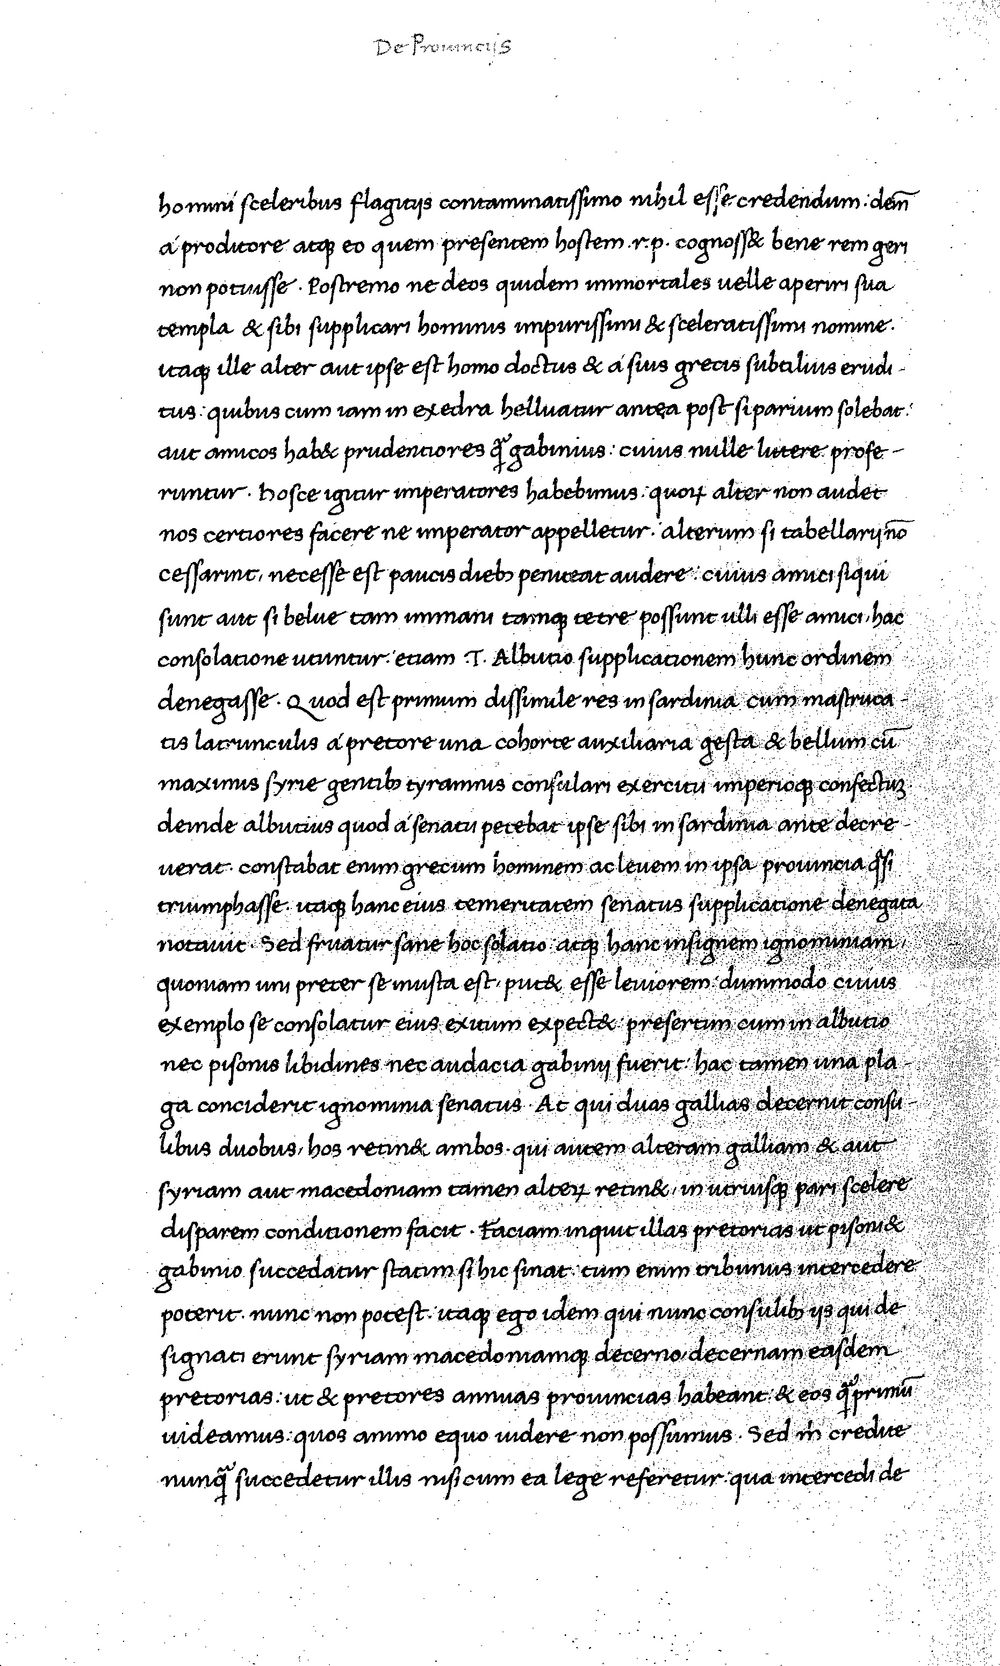 De Prouincijs
homini sceleribus flagitijs contaminatissimo nihil esse credendum: deniꝗ̄
a proditore atqꝫ eo quem presentem hostem .r.p. cognoss& bene rem geri
non potuisse. Postremo ne deos quidem immortales uelle aperiri sua
templa & sibi supplicari hominis impurissimi & sceleratissimi nomine.
itaqꝫ ille alter aut ipse est homo doctus & a suis grecis subtilius erudi-
tus: quibus cum iam in exedra helluatur antea post siparium solebat:
aut amicos hab& prudentiores qᷓ gabinius: cuius nulle littere profe-
runtur. Hosce igitur imperatores habebimus: quoꝝ alter non audet
nos certiores facere ne imperator appelletur. alterum si tabellarij nō
cessarint, necesse est paucis diebꝫ peniteat audere: cuius amici siqui
sunt aut si belue tam immani tamqꝫ tetre possunt ulli esse amici, hac
consolatione utuntur: etiam .T. Albutio supplicationem hunc ordinem
denegasse. Quod est primum dissimile res in sardinia cum mastruca-
tis latrunculis a pretore una cohorte auxiliaria gesta & bellum cū
maximis syrie gentibꝫ tyrannis consulari exercitu imperioqꝫ confectuꝫ
deinde albutius quod a senatu petebat ipse sibi in sardinia ante decre-
uerat. constabat enim grecum hominem ac leuem in ipsa prouincia qᷓsi
triumphasse. itaqꝫ hanc eius temeritatem senatus supplicatione denegata
notauit. Sed fruatur sane hoc solatio atqꝫ hanc insignem ignominiam,
quoniam uni preter se inusta est, put& esse leuiorem: dummodo cuius
exemplo se consolatur eius exitum expect&: presertim cum in albutio
nec pisonis libidines nec audacia gabinij fuerit: hac tamen una pla-
ga conciderit ignominia senatus. At qui duas gallias decernit consu-
libus duobus, hos retin& ambos. qui autem alteram galliam & aut
syriam aut macedoniam tamen alteꝝ retin&, in utriusqꝫ pari scelere
disparem conditionem facit. Faciam inquit illas pretorias ut pisoni &
gabinio succedatur statim si hic sinat: tum enim tribunus intercedere
poterit. nunc non potest. itaqꝫ ego idem qui nunc consulibꝫ ijs qui de
signati erunt syriam macedoniamqꝫ decerno, decernam easdem
pretorias: ut & pretores annuas prouincias habeant: & eos qᷓprimū
uideamus: quos animo equo uidere non possumus. Sed m̄ credite
nunqᷓ succedetur illis nisi cum ea lege referetur: qua intercedi de